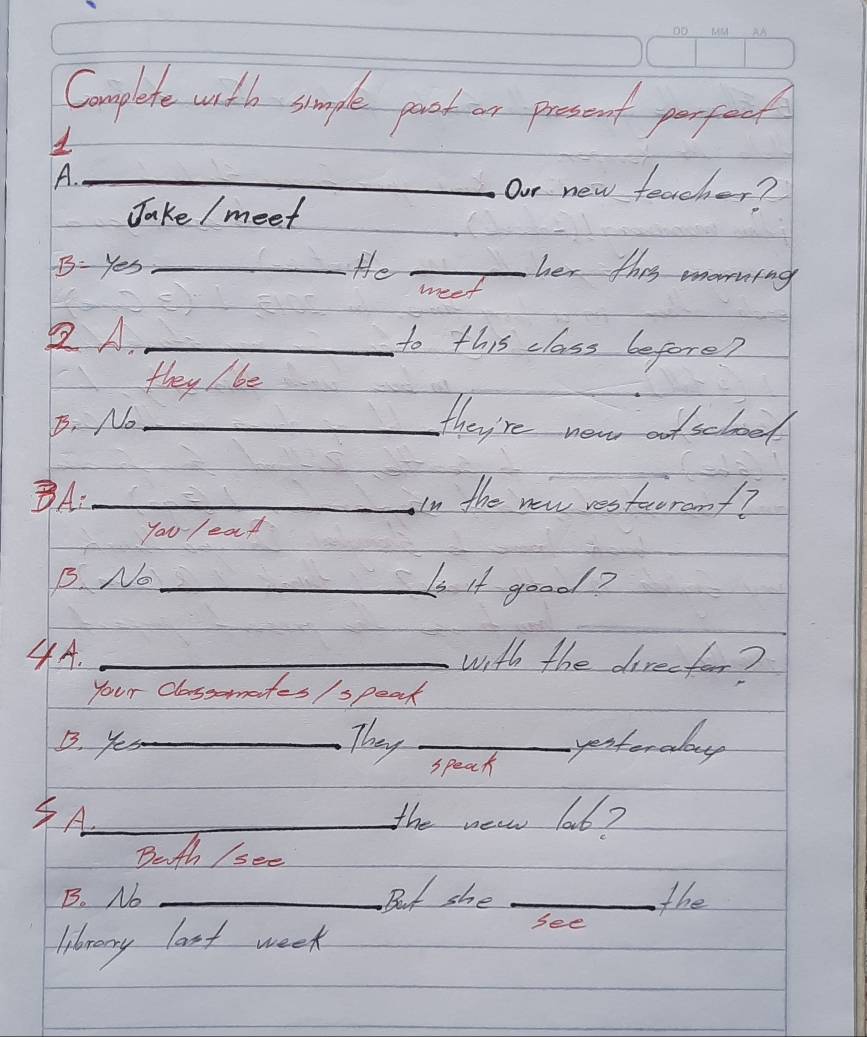 DD MM AA
Complete with simple past or present perfect
1
A. Our new teacher?
Jake / meet
B= Yes He her this morning
meet
2 A. to this class before?
they / be
B. No they're new at school
3 A: in the new restaurant?
You / eat
B. No Is it good?
4 A. with the director?
your classmates / speak
B. Yes They yesterday
speak
5 A. the new lab?
Beth / see
B. No But she the
see
library last week